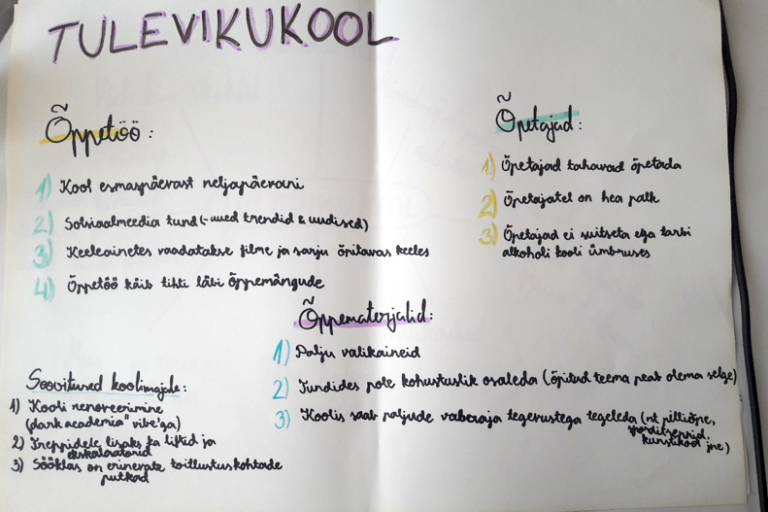 TULEVIKUKOOL
Õppetöö:
1) Kool esmaspäevast neljapäevani
2) Sotsiaalmeedia tund (- uued trendid & uudised)
3) Keeleainetes vaadatakse filme ja sarju õpitavas keeles
4) Õppetöö käib tihti läbi õppemängude
Õpetajad:
1) Õpetajad tahavad õpetada
2) Õpetajatel on hea palk
3) Õpetajad ei suitseta ega tarbi
alkoholi kooli ümbruses
Õppematerjalid:
1) Palju valikaineid
2) Tundides pole kohustuslik osaleda (õpitud teema peab olema selge)
3) Koolis saab paljude vabaaja tegevustega tegeleda (nt pilliõpe,
sporditrennid,
kunstikool jne)
Soovitused koolimajale:
1) Kooli renoveerimine
(dark academia" vibe'ga)
2) Treppidele lisaks ka liftid ja
eskalaatorid
3) Sööklas on erinevate toitlustuskohtade
putkad